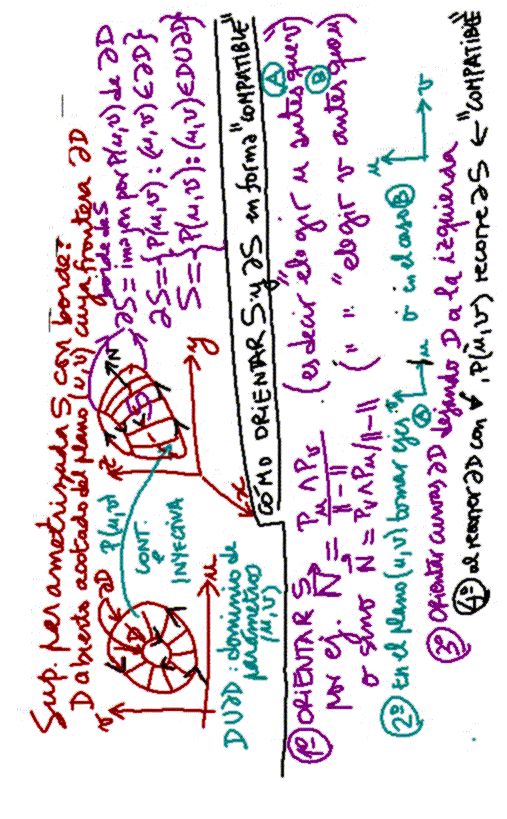 Sup. parametrizada S, con borde:
D abierto acotado del plano (u,v) cuya frontera ∂D
v
∂D
D
u
P(u,v)
CONT.
e
INYECTIVA
z
N
S
y
x
borde de S
∂S = imagen por P(u,v) de ∂D
∂S = {P(u,v) : (u,v) ∈ ∂D}
S = {P(u,v) : (u,v) ∈ D∪∂D}
D∪∂D : dominio de
parámetros
(u,v)
CÓMO ORIENTAR S y ∂S en forma "COMPATIBLE"
1º ORIENTAR S
por ej. N = Pu ∧ Pv / ||–|| (es decir elegir u antes que v) A
o sino N = Pv ∧ Pu / ||–|| ( " " elegir v antes que u) B
2º En el plano (u,v) tomar ejes v A u o en el caso B u v
3º Orientar curvas ∂D dejando D a la izquierda
4º al recorrer ∂D con , P(u,v) recorre ∂S ← "COMPATIBLE"